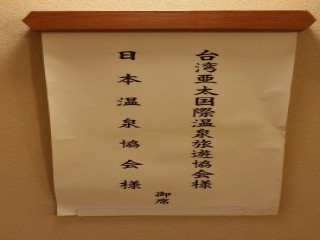 台湾亜太国際温泉旅遊協会様
日本温泉協会様
御席